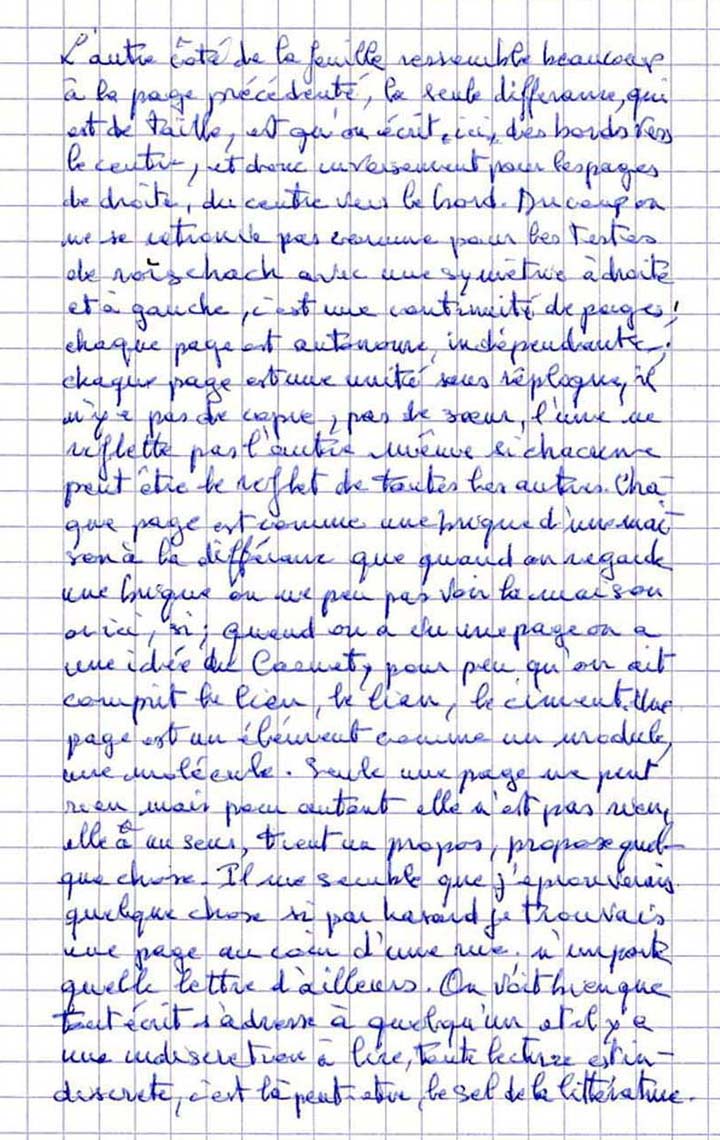 L'autre côté de la feuille ressemble beaucoup
à la page précédente, la seule differance, qui
est de taille, est qu'on écrit, ici, des bords vers
le centre, et donc inversement pour les pages
de droite, du centre vers le bord. Du coup on
ne se retrouve pas comme pour les Testes
de roischach avec une symétrie à droite
et à gauche, c'est une continuité de pages;
chaque page est autonome, indépendante;
chaque page est une unité sans réplogue, il
n'y a pas de copie, pas de sœur, l'une ne
reflette pas l'autre même si chacune
peut être le reflet de toutes les autres. Cha-
que page est comme une brique d'une mai-
son à la différence que quand on regarde
une brique on ne peu pas voir la maison
or ici, si; quand on a lu une page on a
une idée du Carnet, pour peu qu'on ait
comprit le lien, le lien, le ciment. Une
page est un élément comme un module,
une molécule. Seule une page ne peut
rien mais pour autant elle n'est pas rien,
elle a un sens, tient un propos, propose quel-
que chose. Il me semble que j'éprouverais
quelque chose si par hasard je trouvais
une page au coin d'une rue. n'importe
quelle lettre d'ailleurs. On voit bien que
tout écrit s'adresse à quelqu'un et il y a
une indiscretion à lire, toute lecture est in-
discrete, c'est là peut-etre, le sel de la littérature.